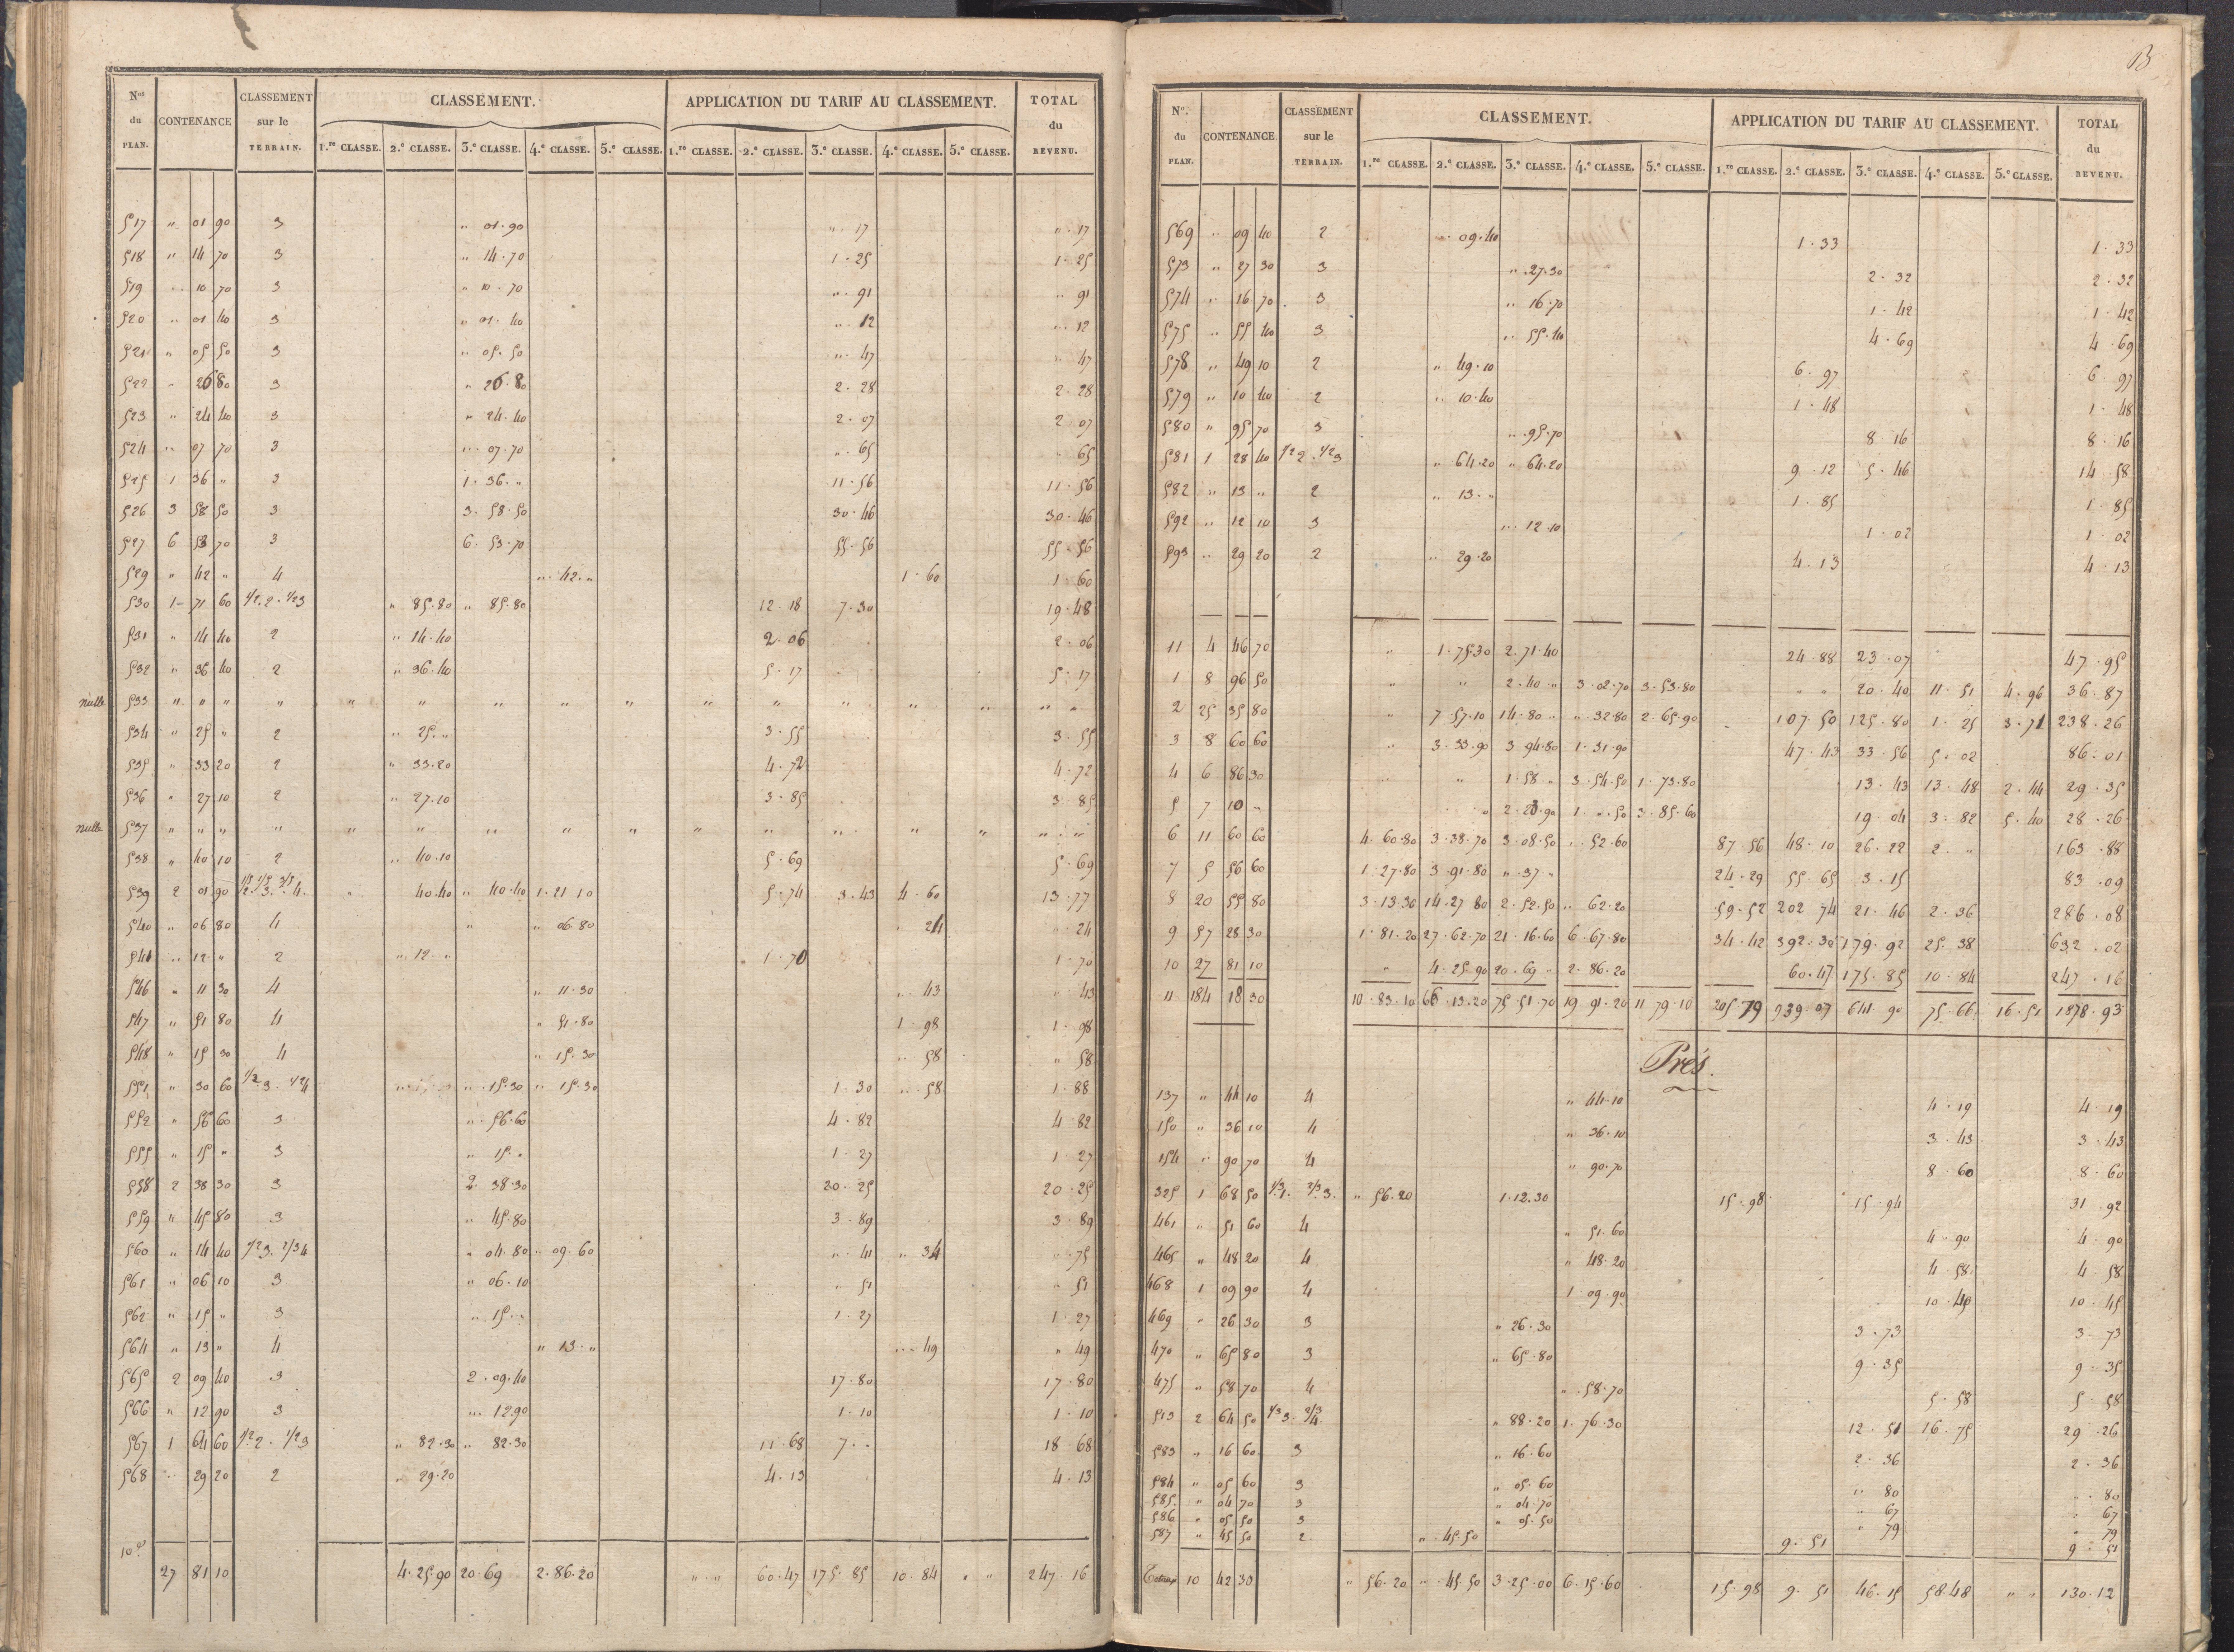 N.os du PLAN. CONTENANCE CLASSEMENT sur le TERRAIN. CLASSEMENT. APPLICATION DU TARIF AU CLASSEMENT. TOTAL du REVENU.
1.re CLASSE. 2.e CLASSE. 3.e CLASSE. 4.e CLASSE. 5.e CLASSE. 1.re CLASSE. 2.e CLASSE. 3.e CLASSE. 4.e CLASSE. 5.e CLASSE.
517 " 01 90 3 " 01.90 " 17 " 17
518 " 14 70 3 " 14.70 1.25 1.25
519 " 10 70 3 " 10.70 " 91 " 91
520 " 01 40 3 " 01.40 " 12 " 12
521 " 05 50 3 " 05.50 " 47 " 47
522 " 26 80 3 " 26.80 2.28 2.28
523 " 24 40 3 " 24.40 2.07 2.07
524 " 07 70 3 " 07.70 " 65 " 65
525 1 36 " 3 1.36." 11.56 11.56
526 3 58 50 3 3.58.50 30.46 30.46
527 6 53 70 3 6.53.70 55.56 55.56
529 " 42 " 4 " 42." 1.60 1.60
530 1 71 60 1/2.2.1/2 3 " 85.80 " 85.80 12.18 7.30 19.48
531 " 14 40 2 " 14.40 2.06 2.06
532 " 36 40 2 " 36.40 5.17 5.17
nulle 533 " " " " " " " " " " " " " " " "
534 " 25 " 2 " 25." 3.55 3.55
535 " 33 20 2 " 33.20 4.72 4.72
536 " 27 10 2 " 27.10 3.85 3.85
nulle 537 " " " " " " " " " " " " " " " "
538 " 40 10 2 " 40.10 5.69 5.69
539 2 01 90 1/5 2. 1/5 3. 3/5 4. " 40.40 " 40.40 1.21 10 5.74 3.43 4.60 13.77
540 " 06 80 4 " " 06.80 " 24 " 24
541 " 12 " 2 " 12." " 1.70 1.70
546 " 11 30 4 " 11.30 " 43 " 43
547 " 51 80 4 " 51.80 1.98 1.98
548 " 15 30 4 " 15.30 " 58 " 58
551 " 30 60 1/2 3. 1/2 4 " 15.30 " 15.30 1.30 " 58 1.88
552 " 56 60 3 " 56.60 4.82 4.82
555 " 15 " 3 " 15." 1.27 1.27
558 2 38 30 3 2.38.30 20.25 20.25
559 " 45 80 3 " 45.80 3.89 3.89
560 " 14 40 1/2 3. 2/3 4 " 04.80 " 09.60 " 41 " 34 " 75
561 " 06 10 3 " 06.10 " 51 " 51
562 " 15 " 3 " 15." 1.27 1.27
564 " 13 " 4 " 13." " 49 " 49
565 2 09 40 3 2.09.40 17.80 17.80
566 " 12 90 3 " 12 90 1.10 1.10
567 1 64 60 1/2 2. 1/2 3 " 82.30 " 82.30 11.68 7." 18.68
568 " 29 20 2 " 29.20 4.13 4.13
10.e 27 81 10 4.25.90 20.69 2.86.20 " " 60.47 175.85 10.84 " " 247.16
13
N.o du PLAN. CONTENANCE. CLASSEMENT sur le TERRAIN. CLASSEMENT. APPLICATION DU TARIF AU CLASSEMENT. TOTAL du REVENU.
1.re CLASSE. 2.e CLASSE. 3.e CLASSE. 4.e CLASSE. 5.e CLASSE. 1.re CLASSE. 2.e CLASSE. 3.e CLASSE. 4.e CLASSE. 5.e CLASSE.
569 " 09 40 2 " 09.40 1.33 1.33
573 " 27 30 3 " 27.30 2.32 2.32
574 " 16 70 3 " 16.70 1.42 1.42
575 " 55 40 3 " 55.40 4.69 4.69
578 " 49 10 2 " 49.10 6.97 6.97
579 " 10 40 2 " 10.40 1.48 1.48
580 " 95 70 3 " 95.70 8 16 8.16
581 1 28 40 1/2 2. 1/2 3 " 64.20 " 64.20 9.12 5.46 14.58
582 " 13 " 2 " 13." 1.85 1.85
592 " 12 10 3 " 12.10 1.02 1.02
593 " 29 20 2 " 29.20 4.13 4.13
11 4 46 70 " 1.75.30 2.71.40 24.88 23.07 47.95
1 8 96 50 " " 2.40 " 3.02.70 3.53.80 " " 20.40 11.51 4.96 36.87
2 25 35 80 " 7 57.10 14.80 " " 32.80 2.65.90 107.50 125.80 1.25 3.71 238.26
3 8 60 60 " 3.33.90 3 94.80 1.31.90 47.43 33.56 5.02 86.01
4 6 86 30 " " 1.58 " 3.54.50 1.73.80 13.43 13.48 2.44 29.35
5 7 10 " " 2 23.90 1." .50 3.85.60 19.04 3.82 5.40 28.26
6 11 60 60 4.60.80 3.38.70 3 08.50 " 52.60 87 56 48.10 26.22 2 " 163.88
7 5 56 60 1.27.80 3.91.80 " 37." 24.29 55.65 3.15 83.09
8 20 55 80 3.13.30 14.27 80 2.52.50 " 62.20 59.52 202 74 21.46 2.36 286.08
9 57 28 30 1.81.20 27.62.70 21.16.60 6.67.80 34.42 392.30 179.92 25.38 632.02
10 27 81 10 " 4.25.90 20.69 " 2.86.20 60.47 175.85 10.84 247.16
11 184 18 30 10.83.10 66.13.20 75 51 70 19 91.20 11 79.10 205.79 939.07 641 90 75.66 16.51 1878.93
Prés.
137 " 44 10 4 " 44.10 4.19 4.19
150 " 36 10 4 " 36.10 3.43 3.43
154 " 90 70 4 " 90.70 8.60 8.60
325 1 68 50 1/3 1. 2/3 3. " 56.20 1.12.30 15.98 15.94 31.92
461 " 51 60 4 " 51.60 4.90 4.90
465 " 48 20 4 " 48.20 4 58 4.58
468 1 09 90 4 1 09.90 10.45
469 " 26 30 3 " 26.30 3.73 3.73
470 " 65 80 3 " 65.80 9.35 9.35
475 " 58 70 4 " 58.70 5.58 5.58
513 2 64 50 1/3 3. 2/3 4. " 88.20 1.76.30 12.51 16.75 29.26
583 " 16 60 3 " 16.60 2.36 2.36
584 " 05 60 3 " 05.60 " 80 " 80
585 " 04 70 3 " 04.70 " 67 " 67
586 " 05 50 3 " 05.50 " 79 " 79
587 " 45 50 2 " 45.50 9.51 9.51
Totaux 10 42 30 " 56.20 " 45.50 3.25.00 6.15.60 15.98 9.51 46.15 58.48 " " 130.12